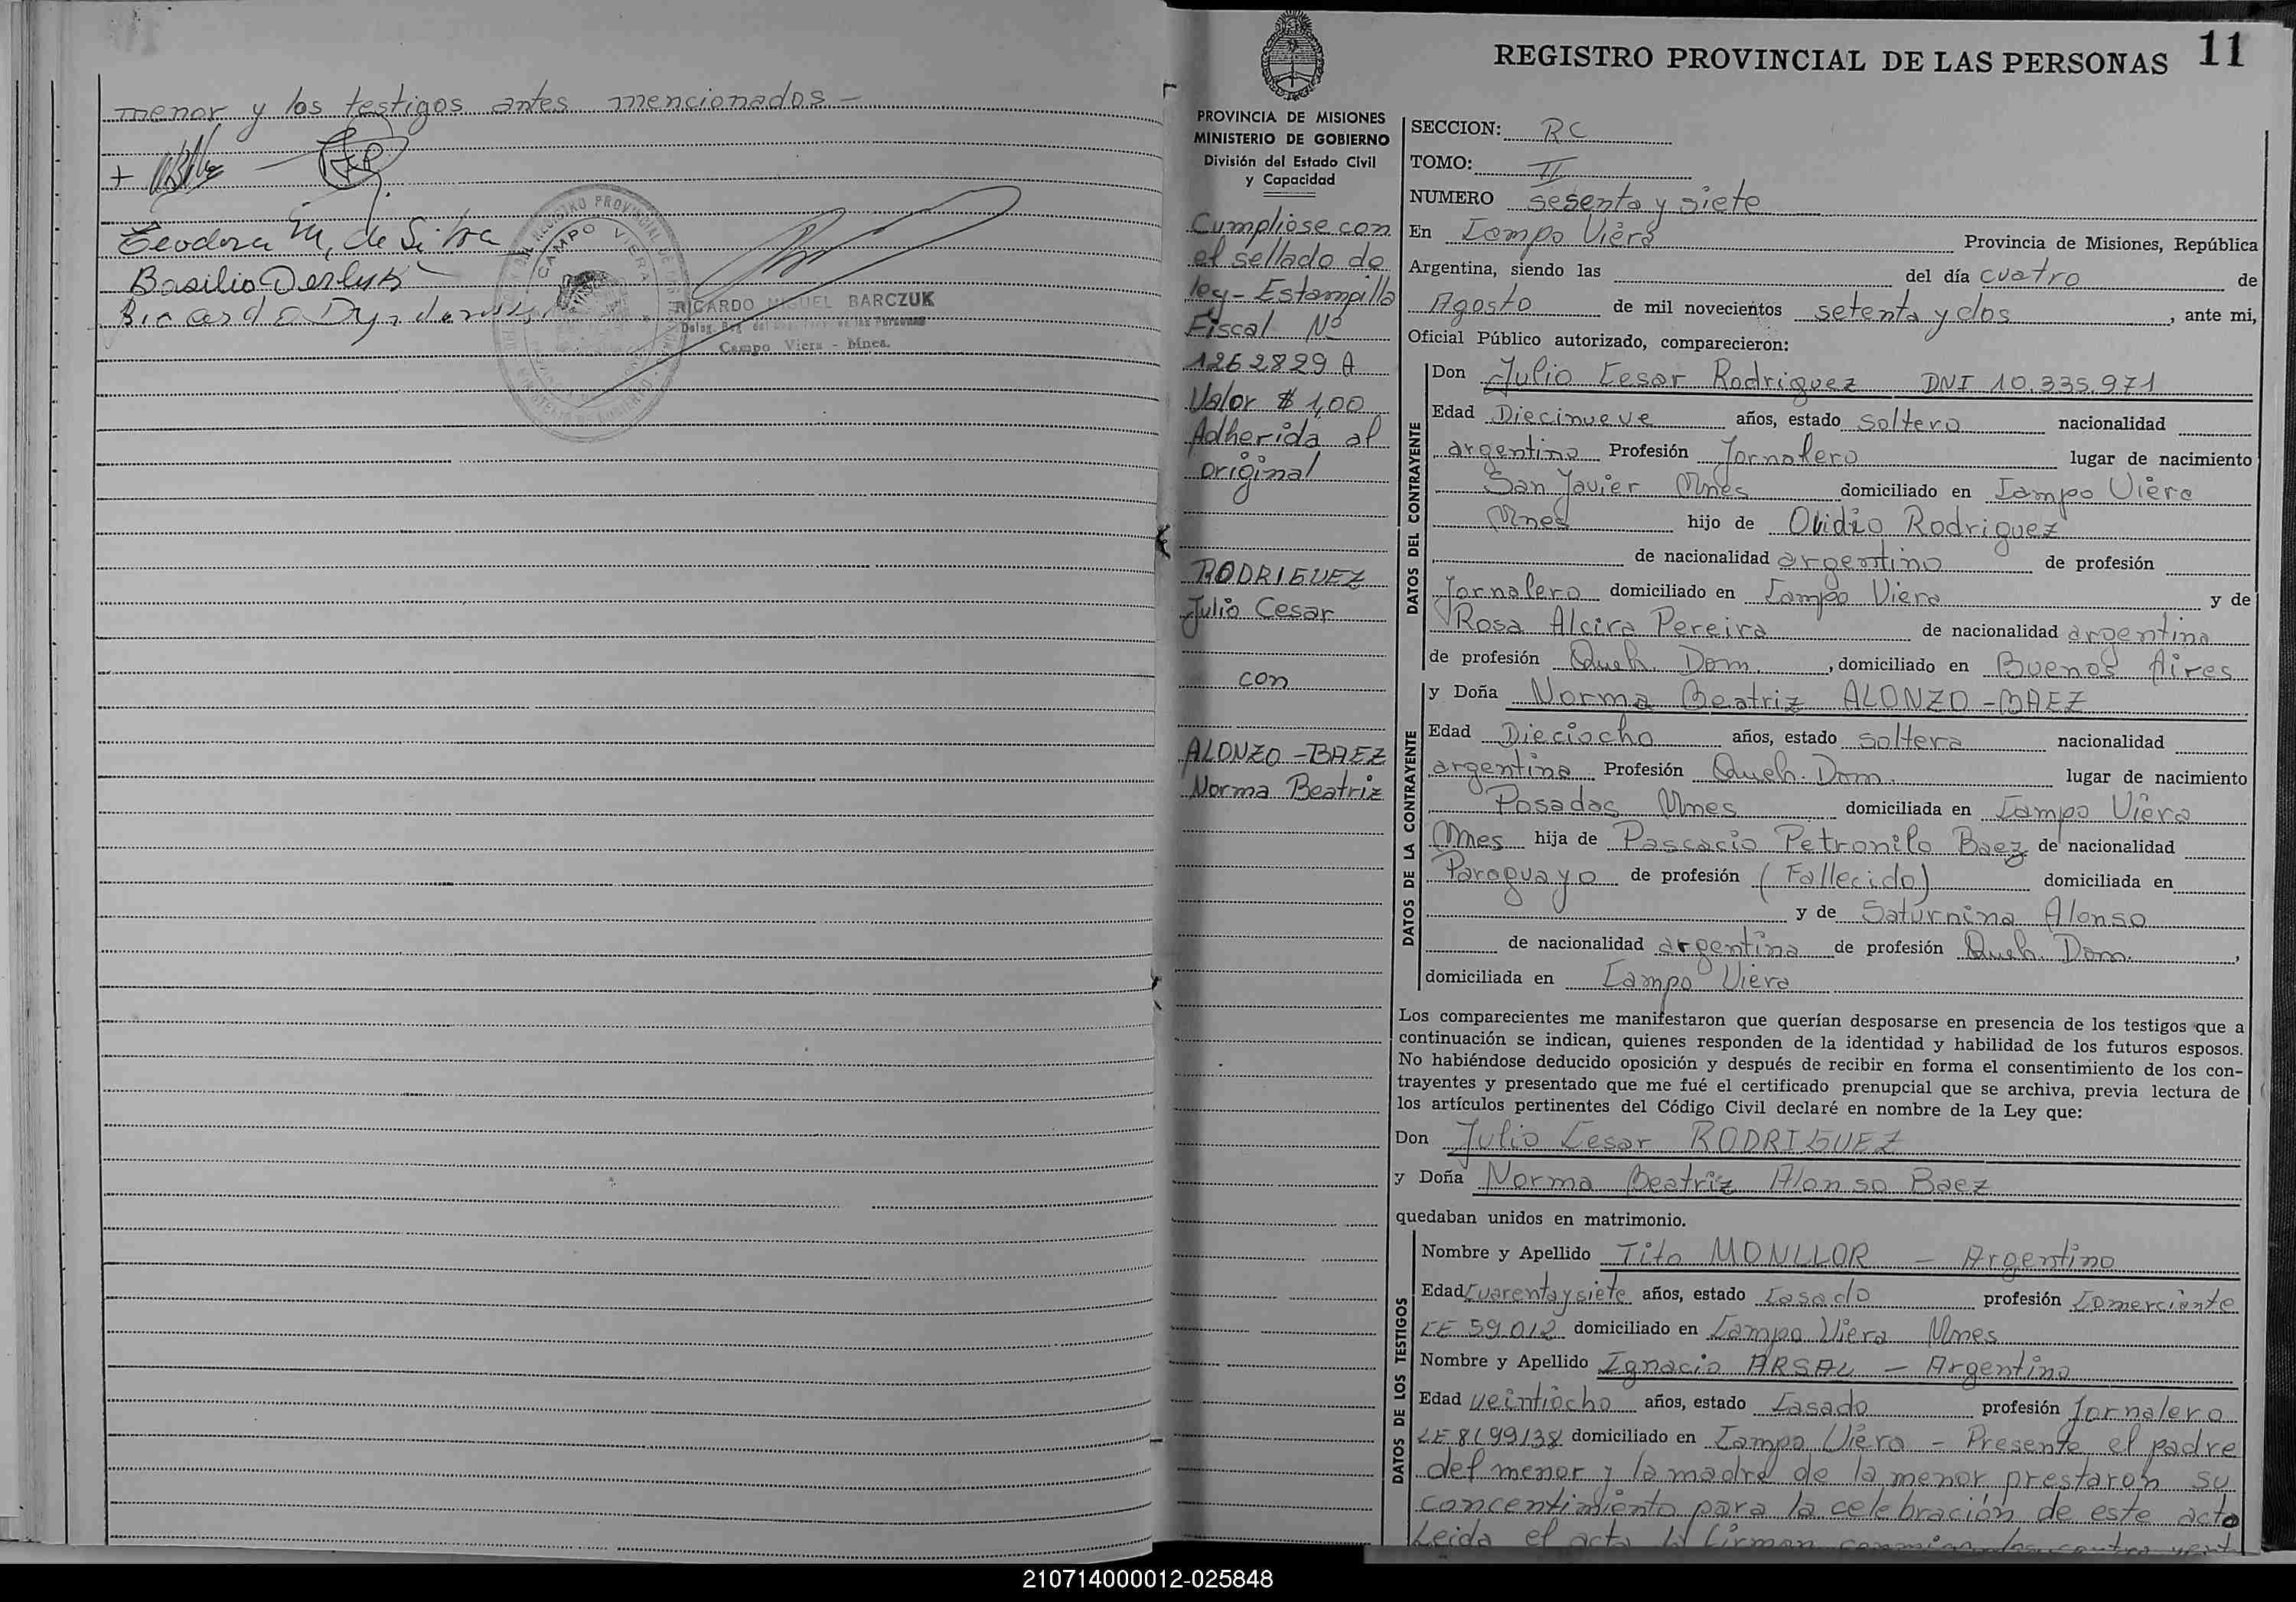 menor y los testigos antes mencionados –
Teodora M. de Silva
Basilio Derluk
REGISTRO PROVINCIAL DE
CAMPO VIERA
RICARDO MIGUEL BARCZUK
Campo Viera - Mnes.
REGISTRO PROVINCIAL DE LAS PERSONAS 11
PROVINCIA DE MISIONES
MINISTERIO DE GOBIERNO
División del Estado Civil
y Capacidad
Cumpliose con
el sellado de
ley - Estampilla
Fiscal Nº
1262829 A
Valor $ 1,00
Adherida al
original
RODRIGUEZ
Julio Cesar
con
ALONZO - BAEZ
Norma Beatriz
SECCION: RC
TOMO: II
NUMERO sesenta y siete
En Campo Viera Provincia de Misiones, República
Argentina, siendo las del día cuatro de
Agosto de mil novecientos setenta y dos, ante mi,
Oficial Público autorizado, comparecieron:
DATOS DEL CONTRAYENTE
Don Julio Cesar Rodriguez DNI 10.335.971
Edad Diecinueve años, estado soltero nacionalidad
argentino Profesión Jornalero lugar de nacimiento
San Javier Mnes domiciliado en Campo Viera
Mnes hijo de Ovidio Rodriguez
de nacionalidad argentino de profesión
Jornalero domiciliado en Campo Viera y de
Rosa Alcira Pereira de nacionalidad argentina
de profesión Queh. Dom., domiciliado en Buenos Aires
DATOS DE LA CONTRAYENTE
y Doña Norma Beatriz ALONZO - BAEZ
Edad Dieciocho años, estado soltera nacionalidad
argentina Profesión Queh. Dom. lugar de nacimiento
Posadas Mnes domiciliada en Campo Viera
Mnes hija de Pascacio Petronilo Baez de nacionalidad
Paraguayo de profesión (Fallecido) domiciliada en
y de Saturnina Alonso
de nacionalidad argentina de profesión Queh. Dom.,
domiciliada en Campo Viera
Los comparecientes me manifestaron que querían desposarse en presencia de los testigos que a
continuación se indican, quienes responden de la identidad y habilidad de los futuros esposos.
No habiéndose deducido oposición y después de recibir en forma el consentimiento de los con-
trayentes y presentado que me fué el certificado prenupcial que se archiva, previa lectura de
los artículos pertinentes del Código Civil declaré en nombre de la Ley que:
Don Julio Cesar RODRIGUEZ
y Doña Norma Beatriz Alonso Baez
quedaban unidos en matrimonio.
DATOS DE LOS TESTIGOS
Nombre y Apellido Tito MONLLOR – Argentino
Edad Cuarenta y siete años, estado Casado profesión Comerciante
LE 59.012 domiciliado en Campo Viera Mnes
Nombre y Apellido Ignacio ARSAL – Argentino
Edad veintiocho años, estado Casado profesión Jornalero
LE 8199138 domiciliado en Campo Viera – Presente el padre
del menor y la madre de la menor prestaron su
concentimiento para la celebración de este acto
Leida el acta la firman conmigo los
210714000012-025848